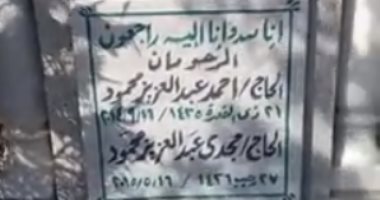 إنا لله وإنا إليه راجعون
المرحومان
الحاج/ احمد عبد العزيز محمود
٢١ ذى القعدة ١٤٣٥ / ١٦ / ٩ / ٢٠١٤
الحاج/ مجدى عبد العزيز محمود
٢٧ رجب ١٤٣٦ / ١٦ / ٥ / ٢٠١٥